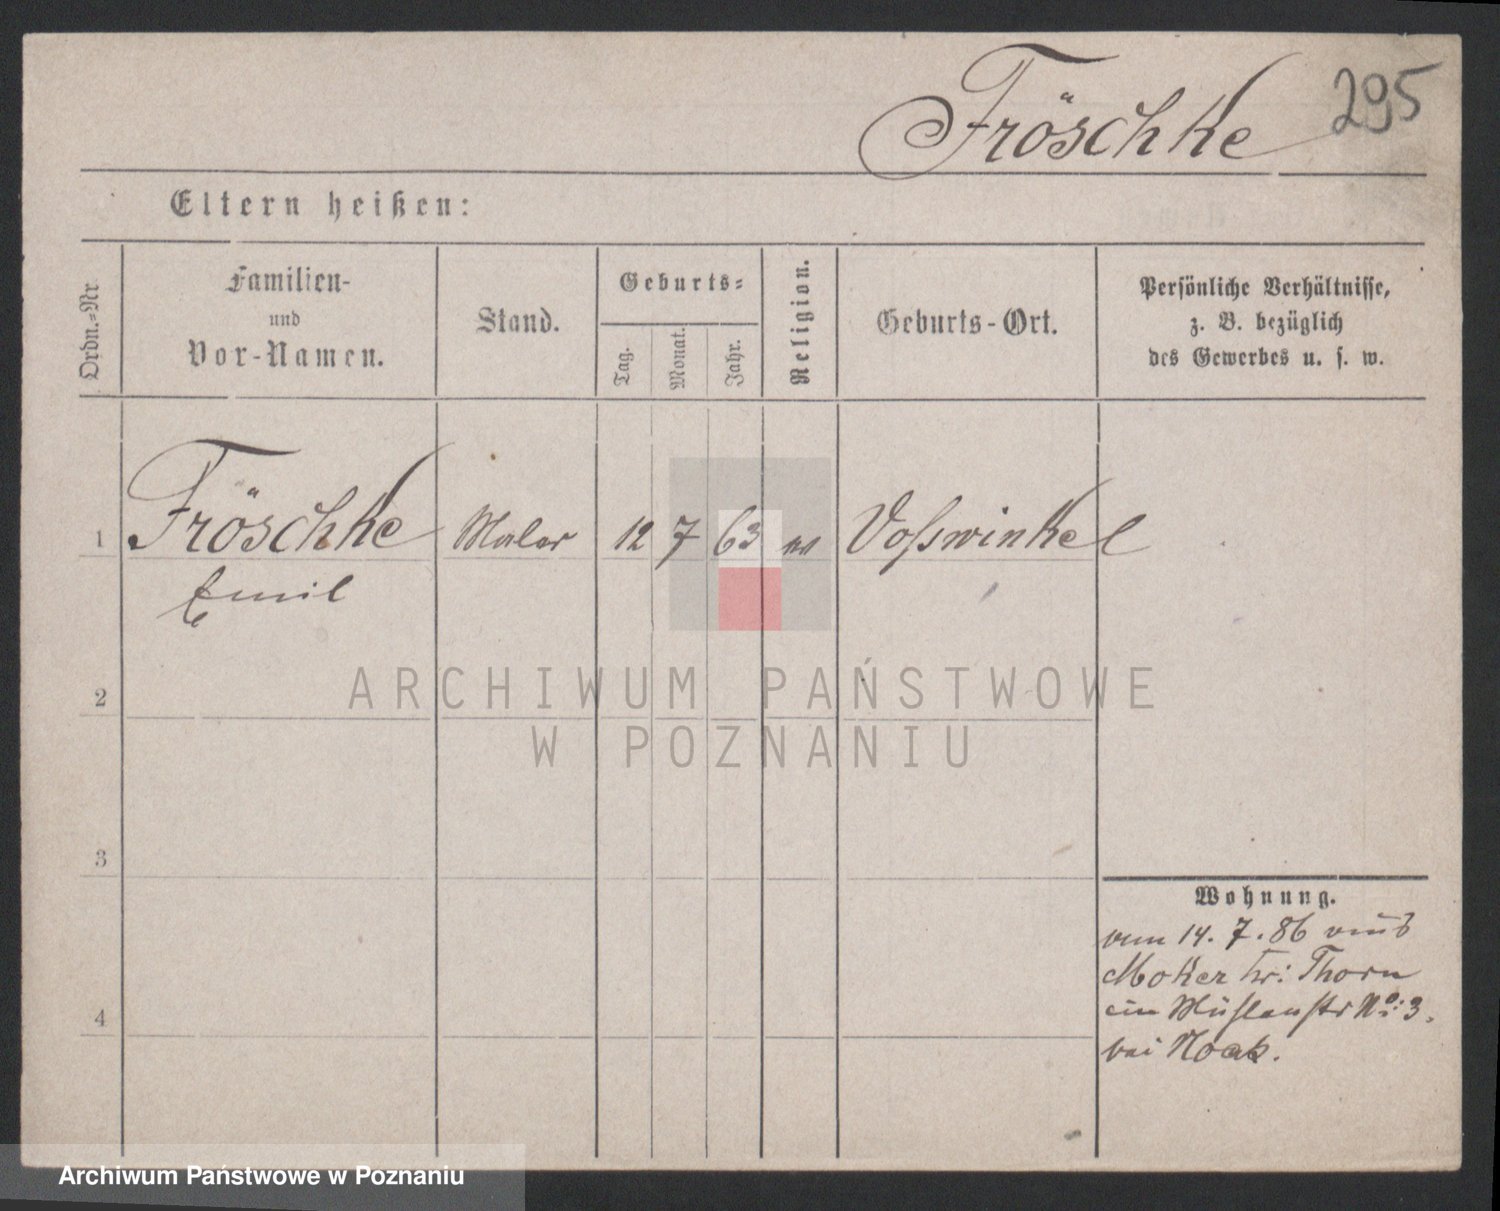 Fröschke 295
Eltern heißen:
Ordn.=Nr.
Familien-
und
Vor-Namen.
Stand.
Geburts=
Tag.
Monat.
Jahr.
Religion.
Geburts-Ort.
Persönliche Verhältnisse,
z. B. bezüglich
des Gewerbes u. s. w.
1 Fröschke Maler 12 7 63 ev Voßwinkel
Emil
2
ARCHIWUM PAŃSTWOWE
W POZNANIU
3
Wohnung.
vom 14. 7. 86 aus
Moker Kr: Thorn
Mühlenstr No: 3.
bei Noak.
4
Archiwum Państwowe w Poznaniu